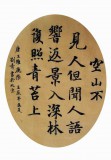 空山不
見人但聞人語
響返景入深林
復照青苔上